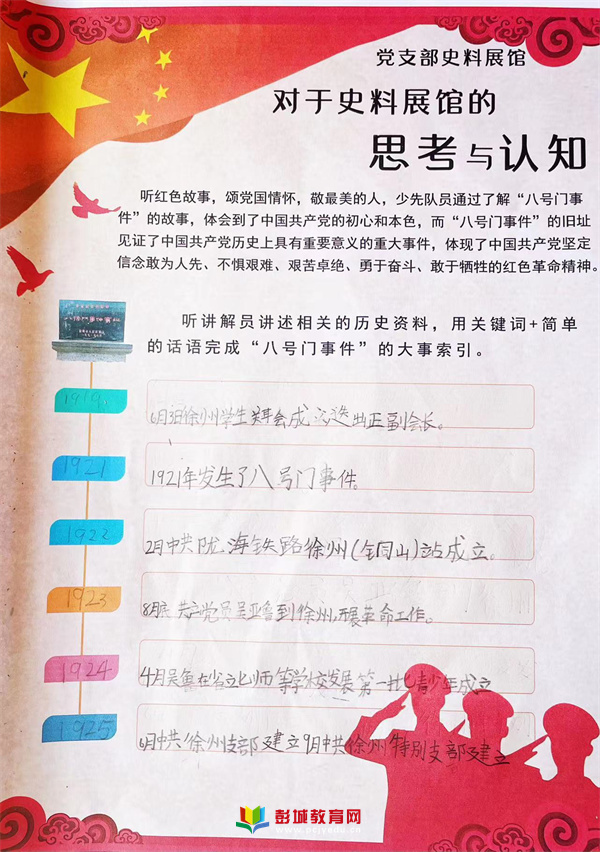 党支部史料展馆
对于史料展馆的
思考与认知
听红色故事，颂党国情怀，敬最美的人，少先队员通过了解“八号门事
件”的故事，体会到了中国共产党的初心和本色，而“八号门事件”的旧址
见证了中国共产党历史上具有重要意义的重大事件，体现了中国共产党坚定
信念敢为人先、不惧艰难、艰苦卓绝、勇于奋斗、敢于牺牲的红色革命精神。
听讲解员讲述相关的历史资料，用关键词+简单
的话语完成“八号门事件”的大事索引。
1919
6月3日徐州学生联合会成立选出正副会长。
1921
1921年发生了八号门事件。
1922
2月中共陇海铁路徐州(铜山)站成立。
1923
8月底共产党员吴亚鲁到徐州,开展革命工作。
1924
4月吴鲁在省立七师等学校发展第一批青少年成立
1925
6月中共徐州支部建立9月中共徐州特别支部建立
彭城教育网